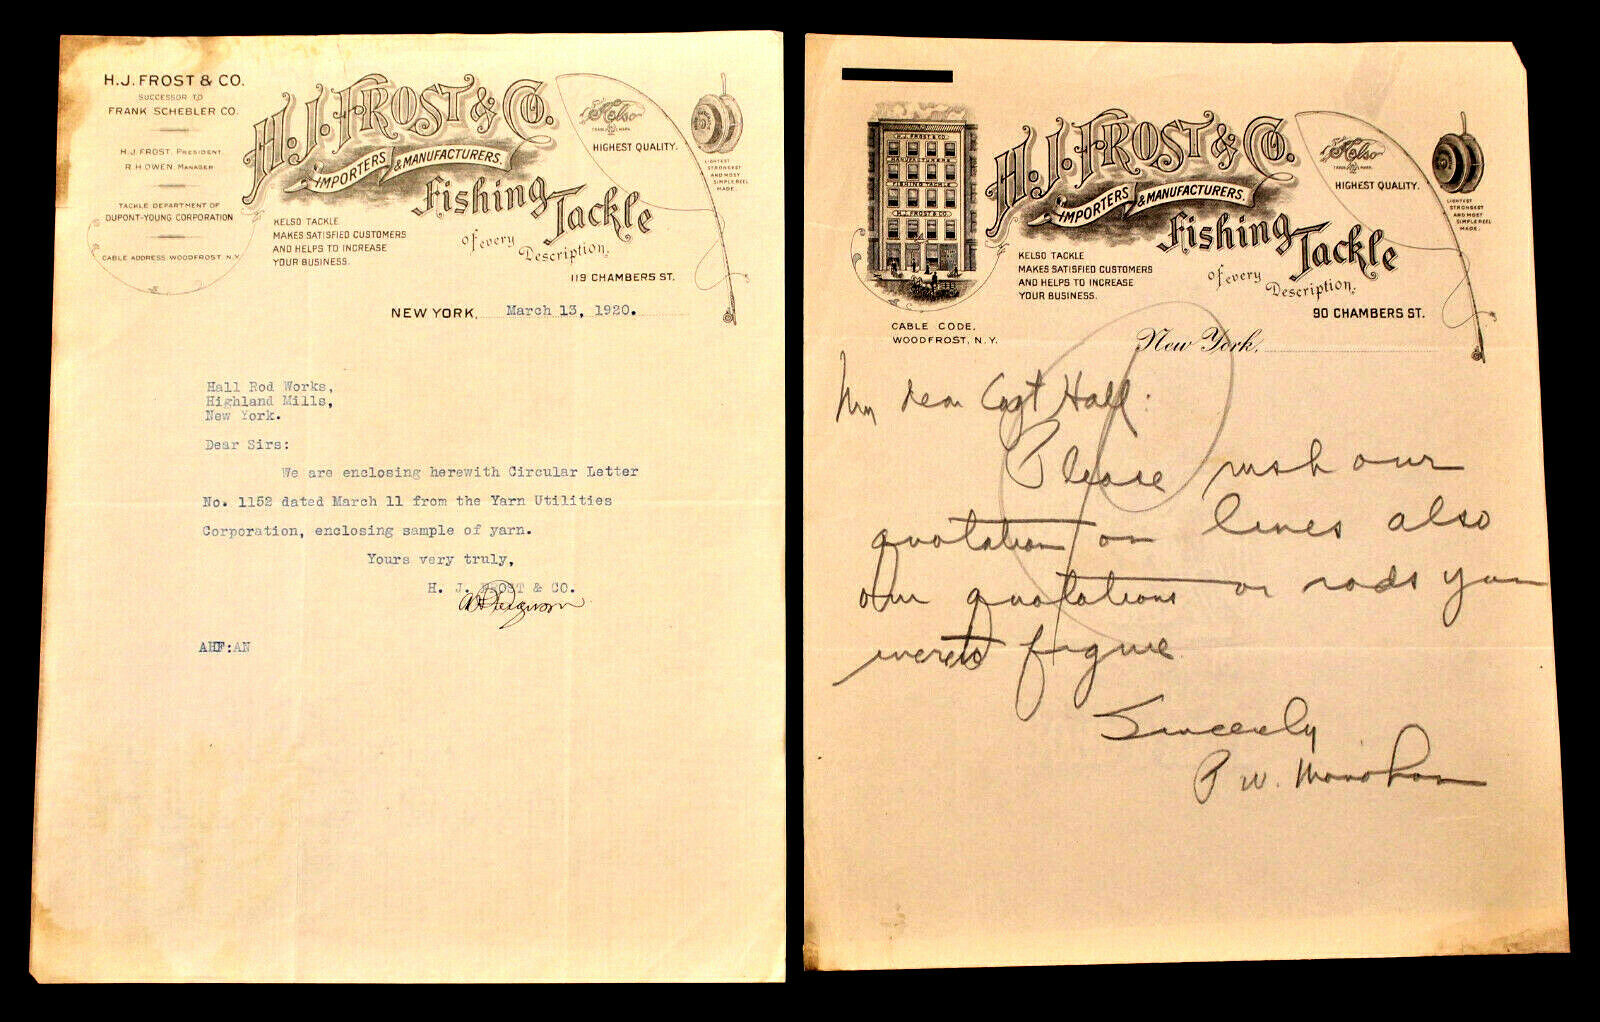 H.J. FROST & CO.
SUCCESSOR TO
FRANK SCHEBLER CO.
H.J. FROST, PRESIDENT.
R.H OWEN, MANAGER
TACKLE DEPARTMENT OF
DUPONT-YOUNG CORPORATION
CABLE ADDRESS WOODFROST, N.Y.
H.J. FROST & CO.
IMPORTERS & MANUFACTURERS.
Fishing Tackle
of every Description.
KELSO TACKLE
MAKES SATISFIED CUSTOMERS
AND HELPS TO INCREASE
YOUR BUSINESS.
Kelso
TRADE MARK
HIGHEST QUALITY.
LIGHTEST
STRONGEST
AND MOST
SIMPLE REEL
MADE.
119 CHAMBERS ST.
NEW YORK, March 13, 1920.
Hall Rod Works,
Highland Mills,
New York.
Dear Sirs:
We are enclosing herewith Circular Letter
No. 1152 dated March 11 from the Yarn Utilities
Corporation, enclosing sample of yarn.
Yours very truly,
H. J. FROST & CO.
AH Ferguson
AHF:AN
H.J. FROST & CO.
MANUFACTURERS
FISHING TACKLE
H.J. FROST & CO.
H.J. FROST & CO.
IMPORTERS & MANUFACTURERS.
Fishing Tackle
of every Description.
KELSO TACKLE
MAKES SATISFIED CUSTOMERS
AND HELPS TO INCREASE
YOUR BUSINESS.
Kelso
TRADE MARK
HIGHEST QUALITY.
LIGHTEST
STRONGEST
AND MOST
SIMPLE REEL
MADE.
90 CHAMBERS ST.
CABLE CODE,
WOODFROST, N.Y.
New York,
My dear Capt Hall:
Please rush our
quotation on lines also
our quotations on rods you
were to figure
Sincerely
P W. Monahan